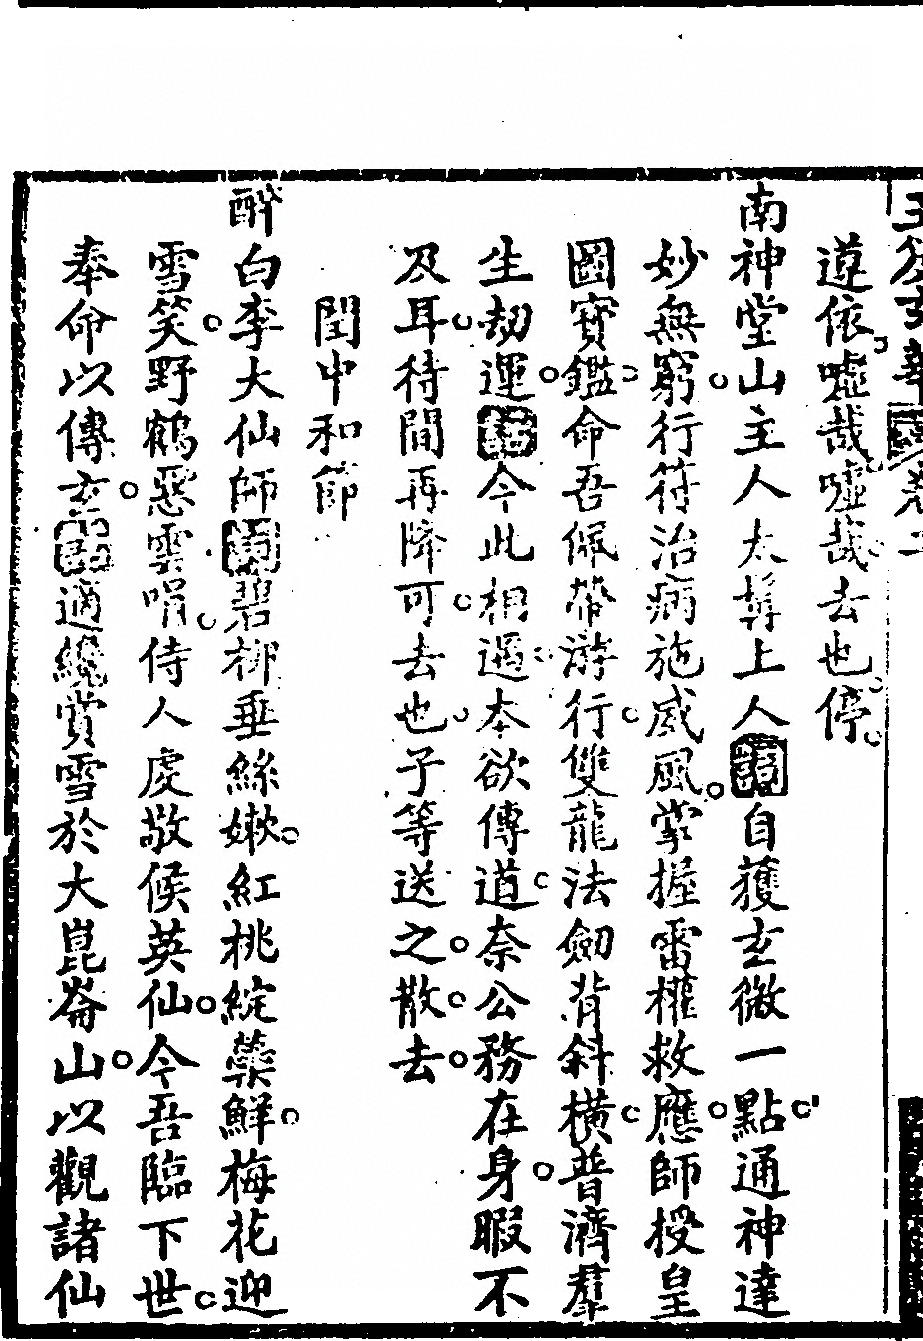 遵依嘘哉嘘哉去也停
南神堂山主人太髯上人詞自獲玄微一點通神達
妙無窮行符治病施威風掌握雷權救應師授皇
圖寶鑑命吾佩帶游行雙龍法劒背斜橫普濟羣
生劫運話今此相遇本欲傳道奈公務在身暇不
及耳待間再降可去也子等送之散去
閏中和節
醉白李大仙師詞碧柳垂絲嫰紅桃綻蘂鮮梅花迎
雪笑野鶴惡雲喧侍人虔敬候英仙今吾臨下世
奉命以傳玄話適纔賞雪於大崑崙山以觀諸仙